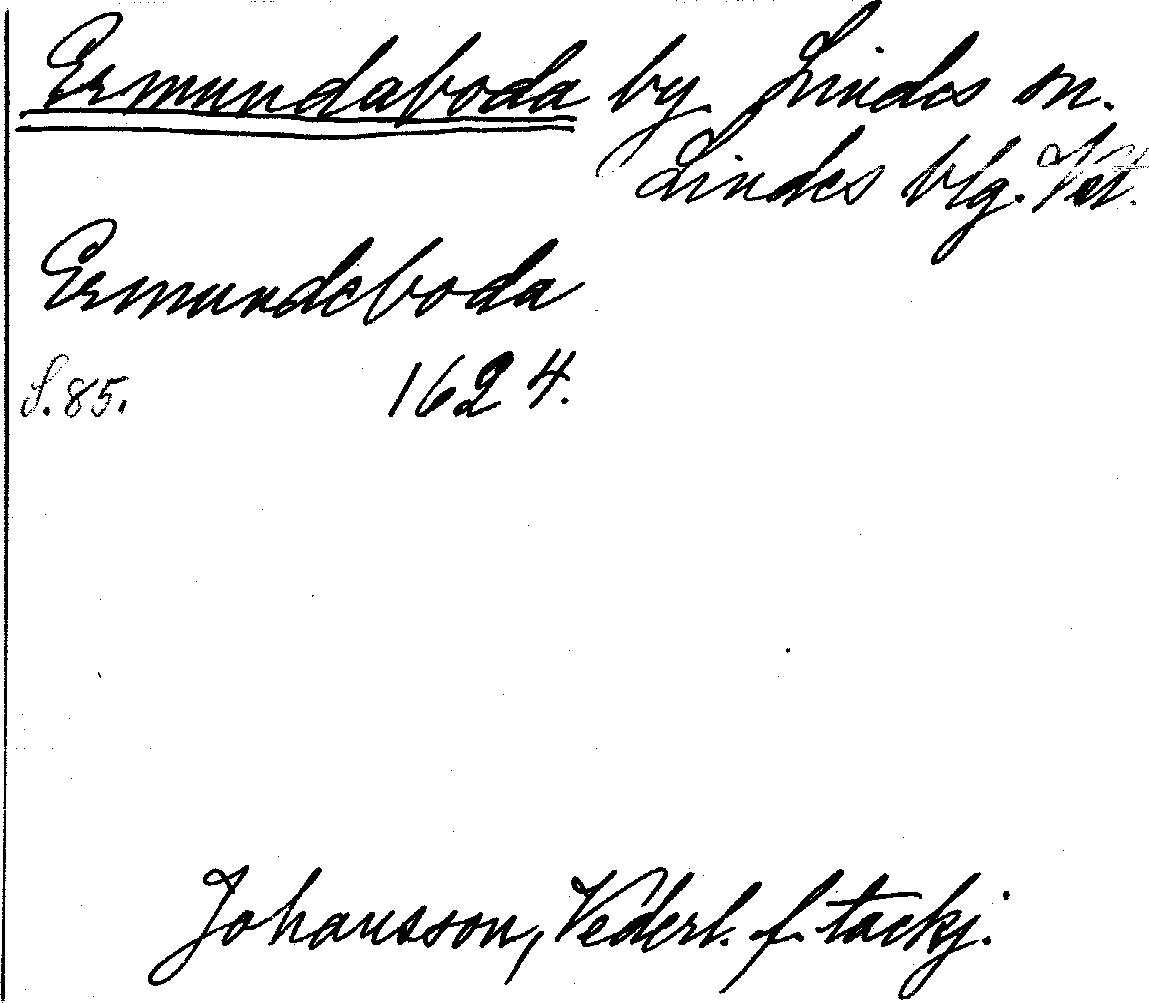 Ermundaboda by Lindes sn.
Lindes blg. Vstl.
Ermundeboda
S. 85. 1624.
Johansson, Vederl. f. tackj.